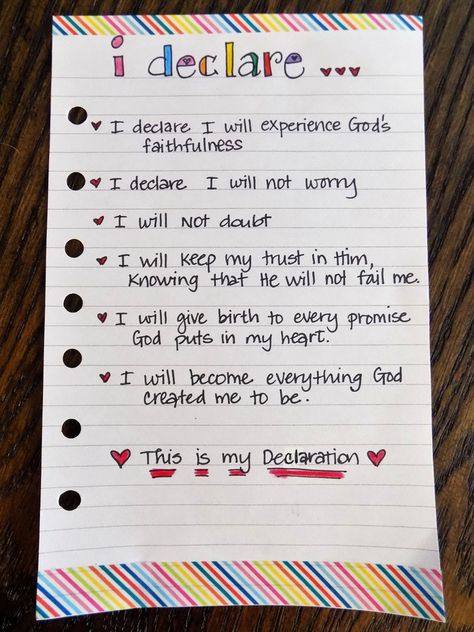 i declare ...
I declare I will experience God's
faithfulness
I declare I will not worry
I will NOT doubt
I will keep my trust in Him,
knowing that He will not fail me.
I will give birth to every promise
God puts in my heart.
I will become everything God
created me to be.
This is my Declaration